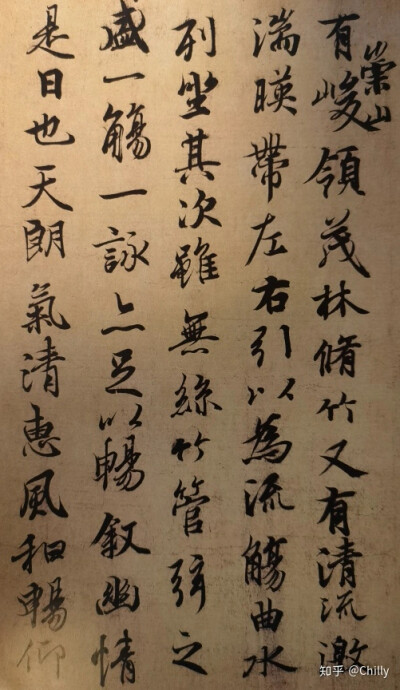 有崇山峻領茂林脩竹又有清流激
湍暎帶左右引以為流觴曲水
列坐其次雖無絲竹管弦之
盛一觴一詠亦足以暢叙幽情
是日也天朗氣清惠風和暢仰
知乎 @Chilly